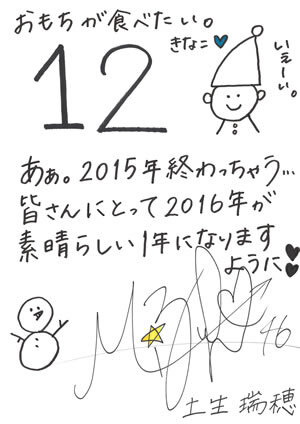 おもちが食べたい。
きなこ♥
いえーい。
12
あぁ。2015年終わっちゃう…
皆さんにとって2016年が
素晴らしい1年になります
ように♥♥
46
土生 瑞穂